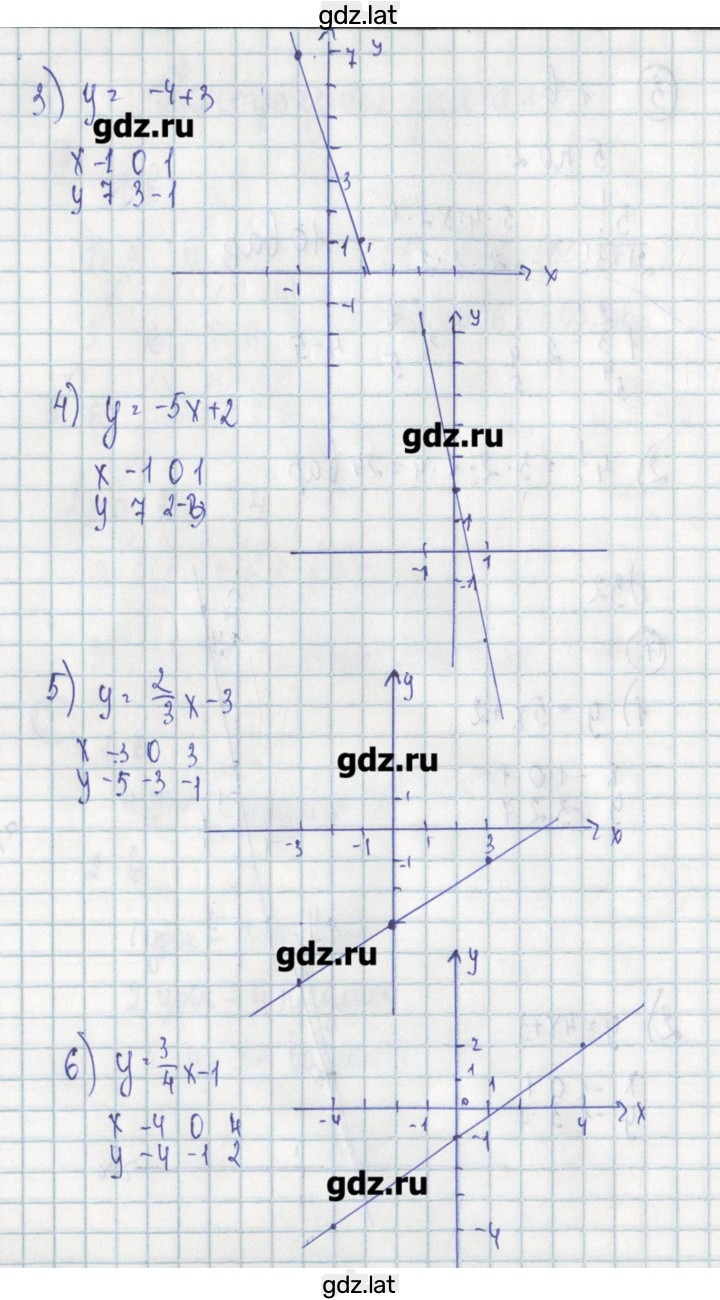 gdz.lat
7 y
3) y = -4+3
gdz.ru
x -1 0 1
y 7 3 -1
3
1 1
-1 x
-1
y
4) y = -5x+2
gdz.ru
x -1 0 1
y 7 2 -3
1
-1 1
-1
5) y = 2/3 x - 3
y
x -3 0 3
y -5 -3 -1
gdz.ru
1
-3 -1 1 3 x
-1
gdz.ru
y
6) y = 3/4 x - 1
2
1 1
x -4 0 4
y -4 -1 2
-4 -1 0 4 x
-1
gdz.ru
-4
gdz.lat